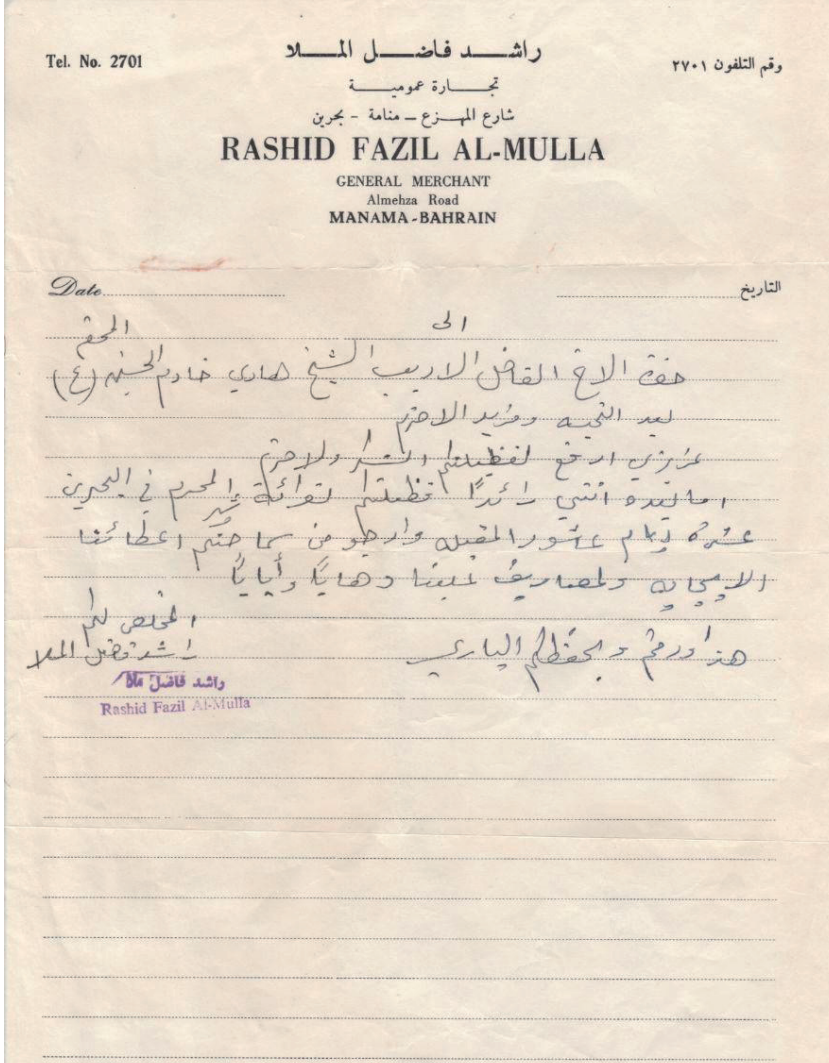 راشد فاضل الملا
Tel. No. 2701
وقم التلفون ٢٧٠١
تجارة عمومية
شارع المهزع - منامة - بحرين
RASHID FAZIL AL-MULLA
GENERAL MERCHANT
Almehza Road
MANAMA-BAHRAIN
Date
التاريخ
الى
حضرة الاخ الفاضل الاديب الشيخ هادي خادم الحسين (ع) المحترم
بعد التحيه ومزيد الاحترام
عزيزي ارفع لفظيلتكم الشكر ولاحترام
اما بعده انني رائداً فظيلتكم لقرائة شهر المحرم في البحرين
عشرة ايام عاشور المقبله وارجو من سماحتكم اعطائنا
الايجابه ولمصاريف علينا وهاباً وأياباً
هذا ودمتم ويحفظكم الباري
المخلص لكم
راشد فضل الملا
راشد فاضل ملا
Rashid Fazil Al-Mulla